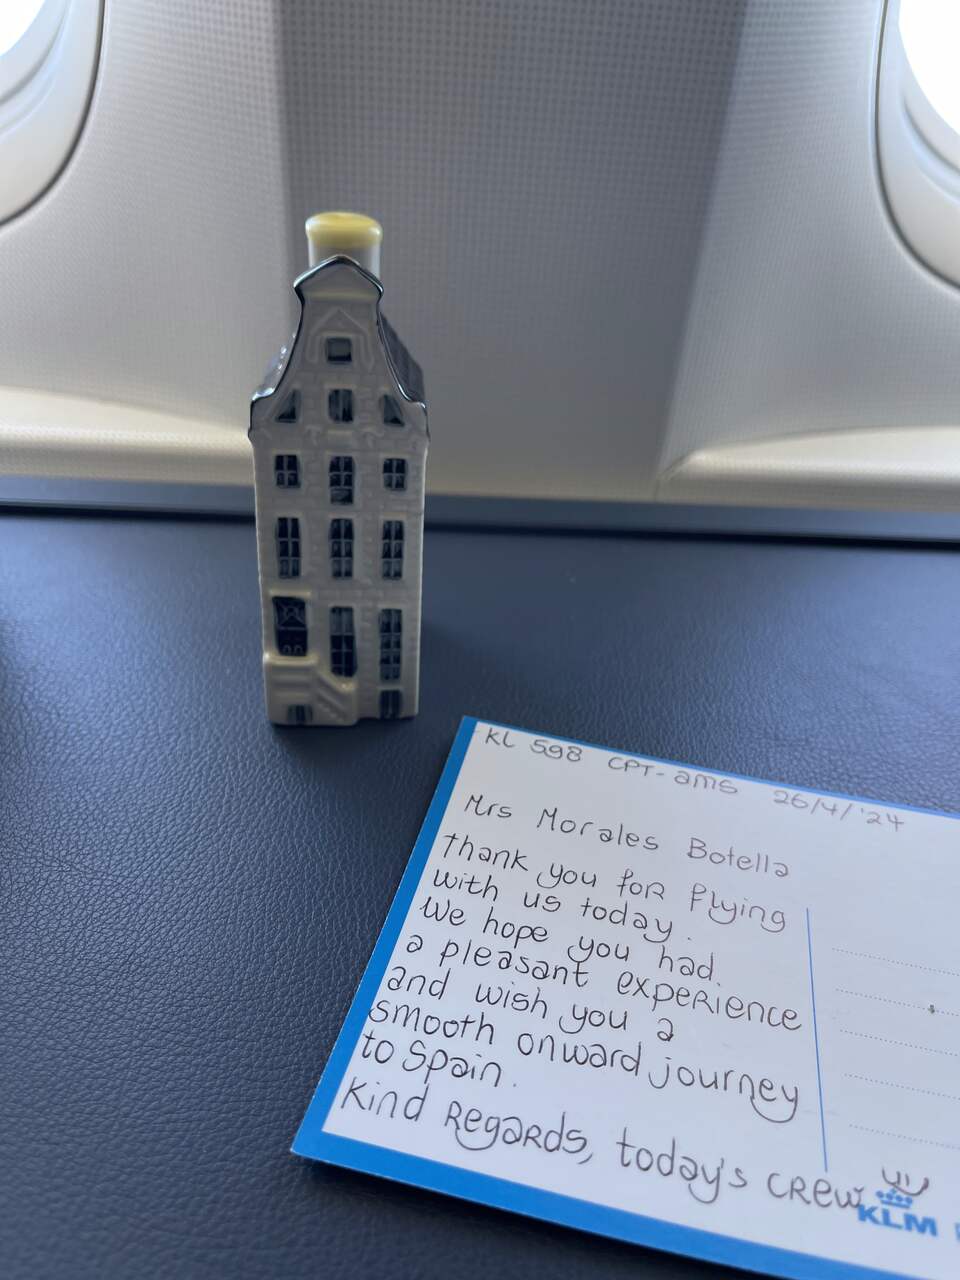 KL 598 CPT-ams 26/4/'24
Mrs Morales Botella
thank you for flying
with us today.
We hope you had
a pleasant experience
and wish you a
smooth onward journey
to Spain.
Kind Regards, today's crew
KLM